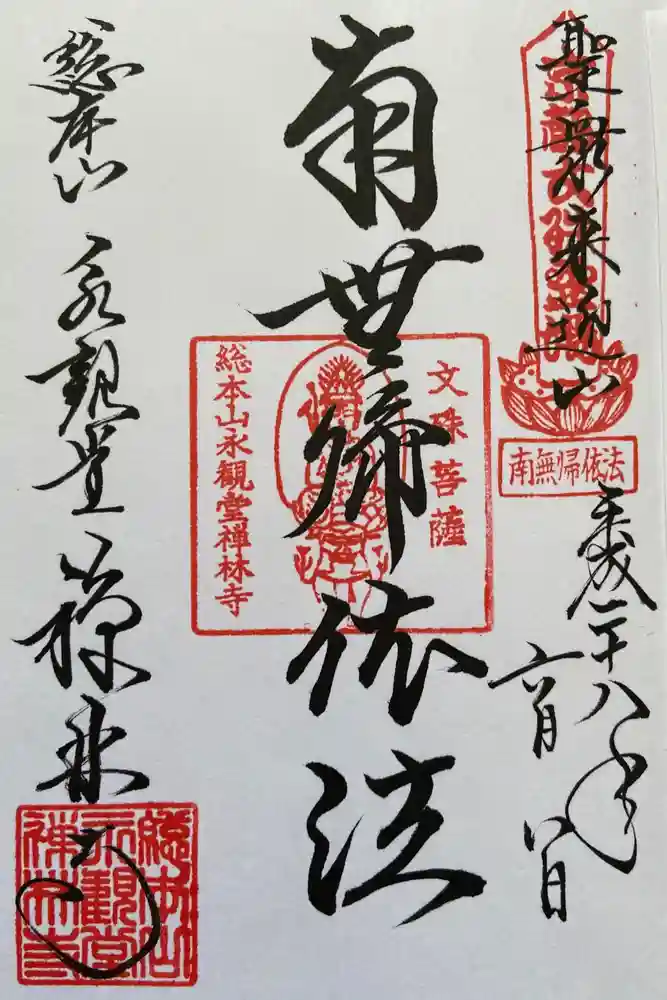 聖衆来迎山
平成二十八年
六月八日
南無帰依法
南無帰依法
文殊菩薩
総本山永観堂禅林寺
総本山
永観堂
禅林寺
総本山
永観堂
禅林寺